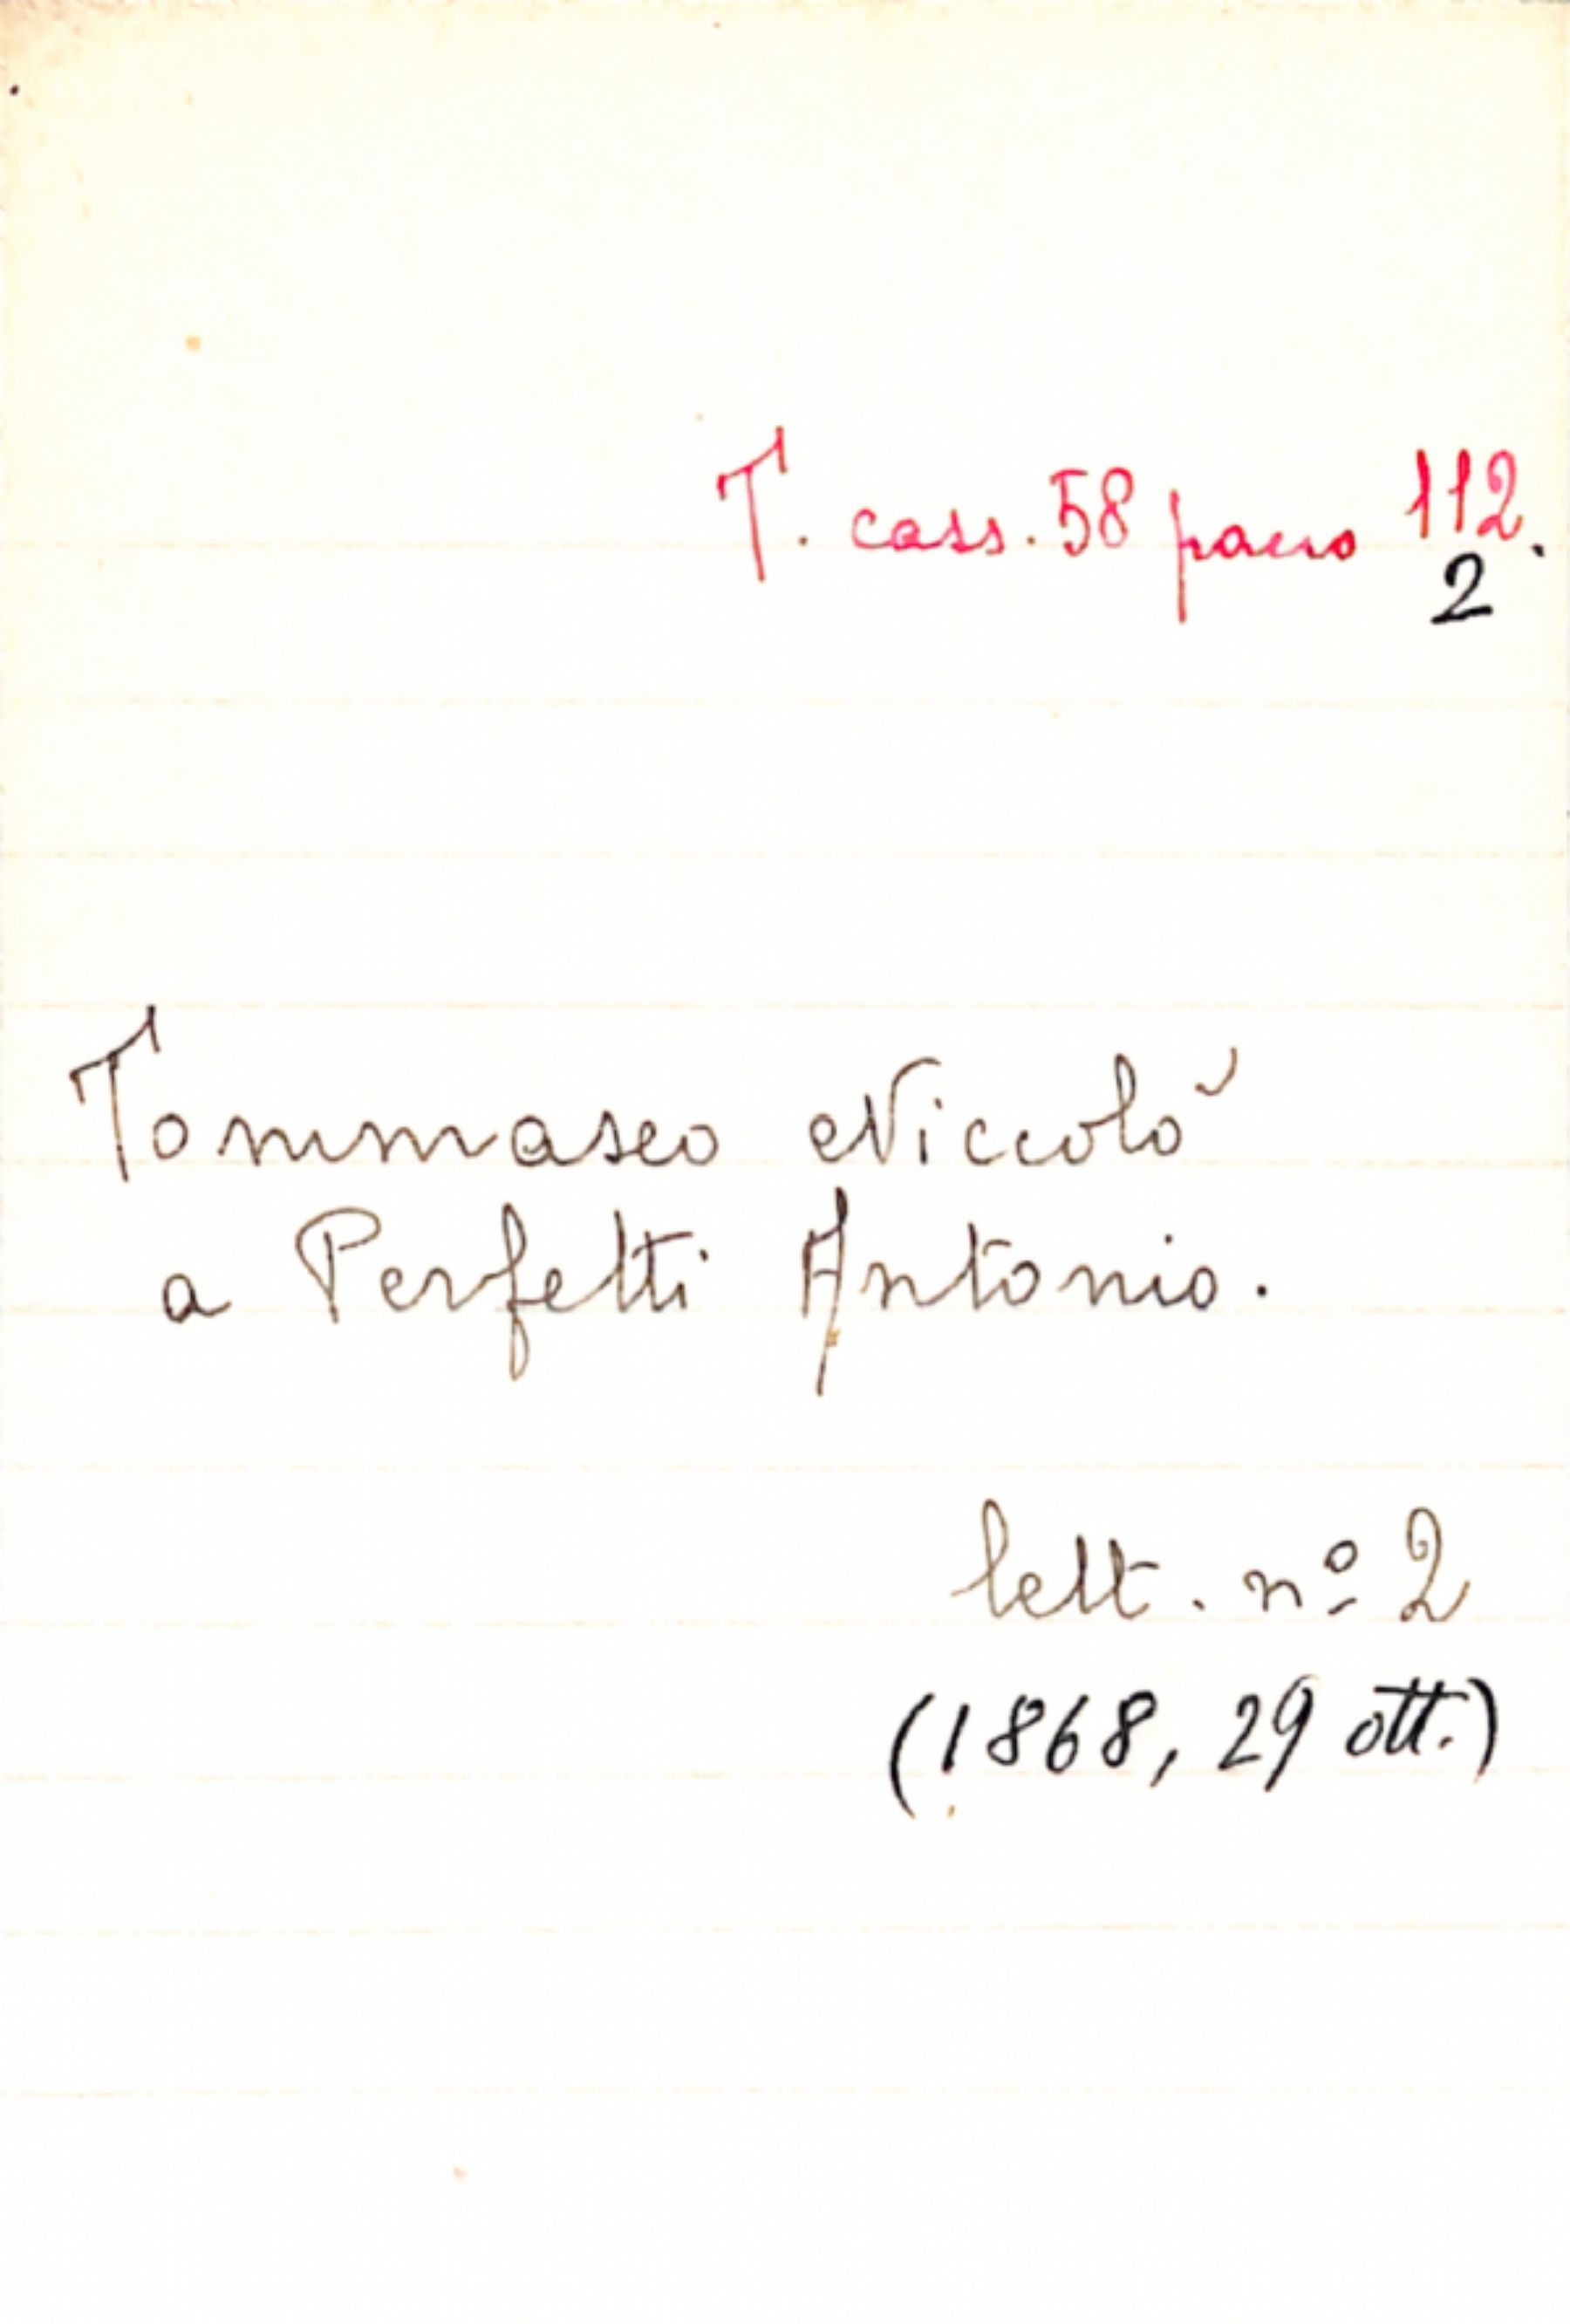 T. cass. 58 pacco 112.
2
Tommaseo Niccolò
a Perfetti Antonio.
lett. nº 2
(1868, 29 ott.)